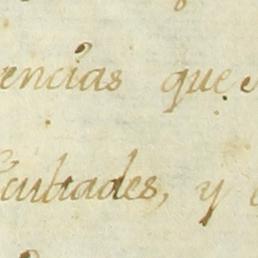 encias que
cultades, y